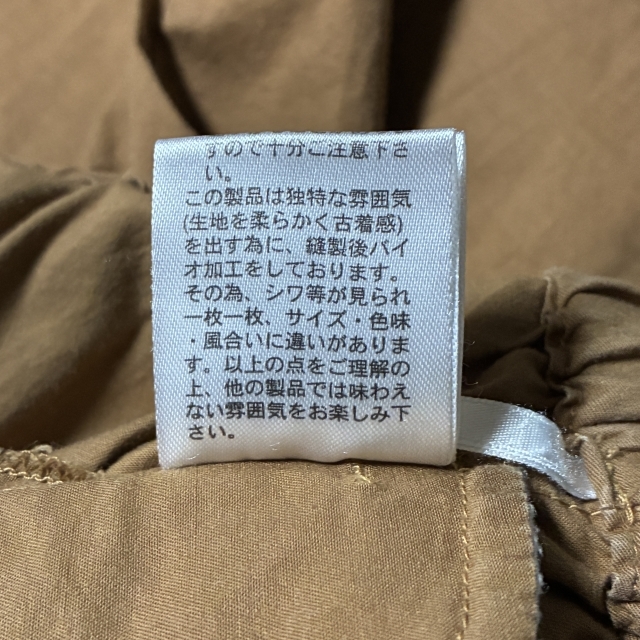 すので十分ご注意下さ
い。
この製品は独特な雰囲気
(生地を柔らかく古着感)
を出す為に、縫製後バイ
オ加工をしております。
その為、シワ等が見られ
一枚一枚、サイズ・色味
・風合いに違いがありま
す。以上の点をご理解の
上、他の製品では味わえ
ない雰囲気をお楽しみ下
さい。